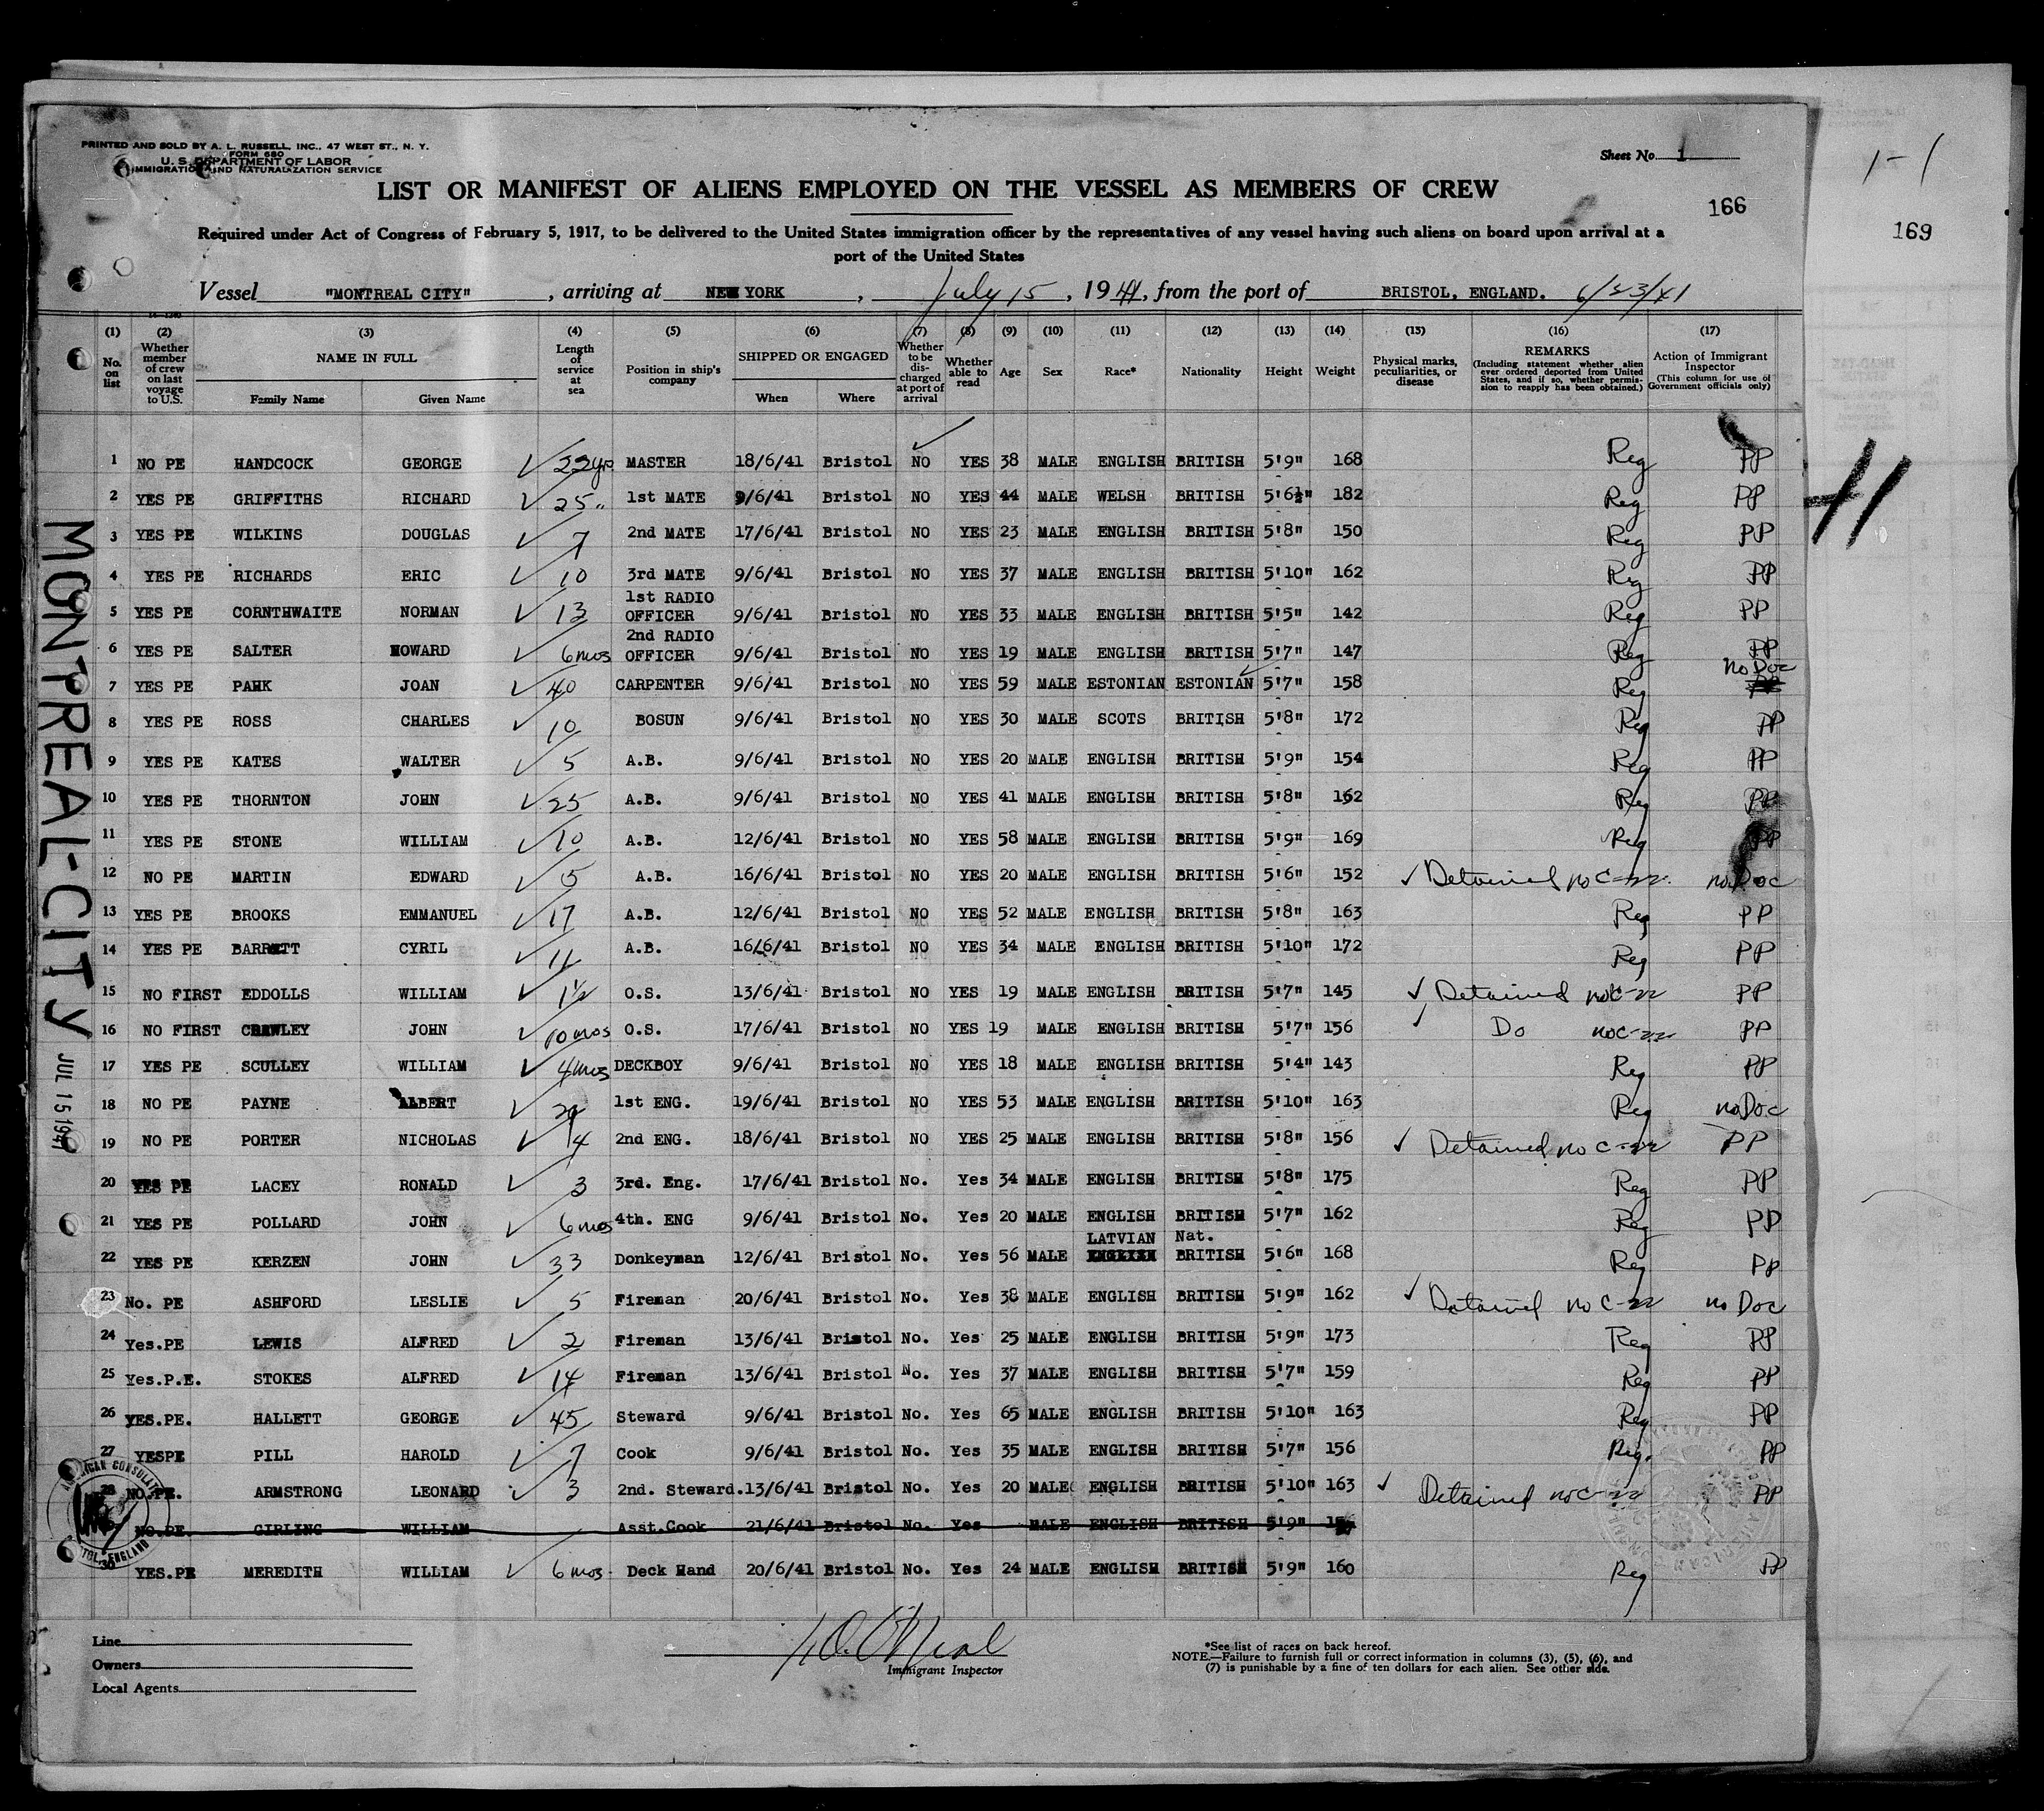 PRINTED AND SOLD BY A. L. RUSSELL, INC., 47 WEST ST., N. Y.
FORM 680
U. S. DEPARTMENT OF LABOR
IMMIGRATION AND NATURALIZATION SERVICE
Sheet No. 1
1-1
LIST OR MANIFEST OF ALIENS EMPLOYED ON THE VESSEL AS MEMBERS OF CREW
166
169
Required under Act of Congress of February 5, 1917, to be delivered to the United States immigration officer by the representatives of any vessel having such aliens on board upon arrival at a
port of the United States
Vessel "MONTREAL CITY", arriving at NEW YORK, July 15, 1941, from the port of BRISTOL, ENGLAND. 6/23/41
(1) (2) (3) (4) (5) (6) (7) (8) (9) (10) (11) (12) (13) (14) (15) (16) (17)
No. on list
Whether member of crew on last voyage to U.S.
NAME IN FULL
Family Name Given Name
Length of service at sea
Position in ship's company
SHIPPED OR ENGAGED
When Where
Whether to be discharged at port of arrival
Whether able to read
Age
Sex
Race*
Nationality
Height
Weight
Physical marks, peculiarities, or disease
REMARKS
(Including statement whether alien ever ordered deported from United States, and if so, whether permission to reapply has been obtained.)
Action of Immigrant Inspector
(This column for use of Government officials only)
1 NO PE HANDCOCK GEORGE 22 yrs MASTER 18/6/41 Bristol NO YES 38 MALE ENGLISH BRITISH 5'9" 168 Reg PP
2 YES PE GRIFFITHS RICHARD 25 " 1st MATE 9/6/41 Bristol NO YES 44 MALE WELSH BRITISH 5'6½" 182 Reg PP
3 YES PE WILKINS DOUGLAS 7 2nd MATE 17/6/41 Bristol NO YES 23 MALE ENGLISH BRITISH 5'8" 150 Reg PP
4 YES PE RICHARDS ERIC 10 3rd MATE 9/6/41 Bristol NO YES 37 MALE ENGLISH BRITISH 5'10" 162 Reg PP
5 YES PE CORNTHWAITE NORMAN 13 1st RADIO OFFICER 9/6/41 Bristol NO YES 33 MALE ENGLISH BRITISH 5'5" 142 Reg PP
6 YES PE SALTER HOWARD 6 mos 2nd RADIO OFFICER 9/6/41 Bristol NO YES 19 MALE ENGLISH BRITISH 5'7" 147 Reg PP
7 YES PE PAHK JOAN 40 CARPENTER 9/6/41 Bristol NO YES 59 MALE ESTONIAN ESTONIAN 5'7" 158 Reg no Doc
8 YES PE ROSS CHARLES 10 BOSUN 9/6/41 Bristol NO YES 30 MALE SCOTS BRITISH 5'8" 172 Reg PP
9 YES PE KATES WALTER 5 A.B. 9/6/41 Bristol NO YES 20 MALE ENGLISH BRITISH 5'9" 154 Reg PP
10 YES PE THORNTON JOHN 25 A.B. 9/6/41 Bristol NO YES 41 MALE ENGLISH BRITISH 5'8" 162 Reg PP
11 YES PE STONE WILLIAM 10 A.B. 12/6/41 Bristol NO YES 58 MALE ENGLISH BRITISH 5'9" 169 Reg PP
12 NO PE MARTIN EDWARD 5 A.B. 16/6/41 Bristol NO YES 20 MALE ENGLISH BRITISH 5'6" 152 Detained no C-22 no Doc
13 YES PE BROOKS EMMANUEL 17 A.B. 12/6/41 Bristol NO YES 52 MALE ENGLISH BRITISH 5'8" 163 Reg PP
14 YES PE BARRETT CYRIL 11 A.B. 16/6/41 Bristol NO YES 34 MALE ENGLISH BRITISH 5'10" 172 Reg PP
15 NO FIRST EDDOLLS WILLIAM 1½ O.S. 13/6/41 Bristol NO YES 19 MALE ENGLISH BRITISH 5'7" 145 Detained no C-22 PP
16 NO FIRST CRAWLEY JOHN 10 mos O.S. 17/6/41 Bristol NO YES 19 MALE ENGLISH BRITISH 5'7" 156 Do no C-22 PP
17 YES PE SCULLEY WILLIAM 4 mos DECKBOY 9/6/41 Bristol NO YES 18 MALE ENGLISH BRITISH 5'4" 143 Reg PP
18 NO PE PAYNE ALBERT 1st ENG. 19/6/41 Bristol NO YES 53 MALE ENGLISH BRITISH 5'10" 163 Reg no Doc
19 NO PE PORTER NICHOLAS 4 2nd ENG. 18/6/41 Bristol NO YES 25 MALE ENGLISH BRITISH 5'8" 156 Detained no C-22 PP
20 YES PE LACEY RONALD 3 3rd. Eng. 17/6/41 Bristol No. Yes 34 MALE ENGLISH BRITISH 5'8" 175 Reg PP
21 YES PE POLLARD JOHN 6 mos 4th. ENG 9/6/41 Bristol No. Yes 20 MALE ENGLISH BRITISH 5'7" 162 Reg PP
22 YES PE KERZEN JOHN 33 Donkeyman 12/6/41 Bristol No. Yes 56 MALE LATVIAN ENGLISH Nat. BRITISH 5'6" 168 Reg PP
23 No. PE ASHFORD LESLIE 5 Fireman 20/6/41 Bristol No. Yes 38 MALE ENGLISH BRITISH 5'9" 162 Detained no C-22 no Doc
24 Yes.PE LEWIS ALFRED 2 Fireman 13/6/41 Bristol No. Yes 25 MALE ENGLISH BRITISH 5'9" 173 Reg PP
25 Yes.P.E. STOKES ALFRED 14 Fireman 13/6/41 Bristol No. Yes 37 MALE ENGLISH BRITISH 5'7" 159 Reg PP
26 YES.PE. HALLETT GEORGE 45 Steward 9/6/41 Bristol No. Yes 65 MALE ENGLISH BRITISH 5'10" 163 Reg PP
27 YESPE PILL HAROLD 7 Cook 9/6/41 Bristol No. Yes 35 MALE ENGLISH BRITISH 5'7" 156 Reg. PP
28 NO.PE. ARMSTRONG LEONARD 3 2nd. Steward. 13/6/41 Bristol No. Yes 20 MALE ENGLISH BRITISH 5'10" 163 Detained no C-22 PP
NO.PE. GIRLING WILLIAM Asst.Cook 21/6/41 Bristol No. Yes MALE ENGLISH BRITISH 5'9"
30 YES.PE MEREDITH WILLIAM 6 mos. Deck Hand 20/6/41 Bristol No. Yes 24 MALE ENGLISH BRITISH 5'9" 160 Reg PP
MONTREAL-CITY
JUL 15 1941
41
AMERICAN CONSULATE
BRISTOL, ENGLAND
Line
Owners
Local Agents
Immigrant Inspector
*See list of races on back hereof.
NOTE.—Failure to furnish full or correct information in columns (3), (5), (6), and
(7) is punishable by a fine of ten dollars for each alien. See other side.